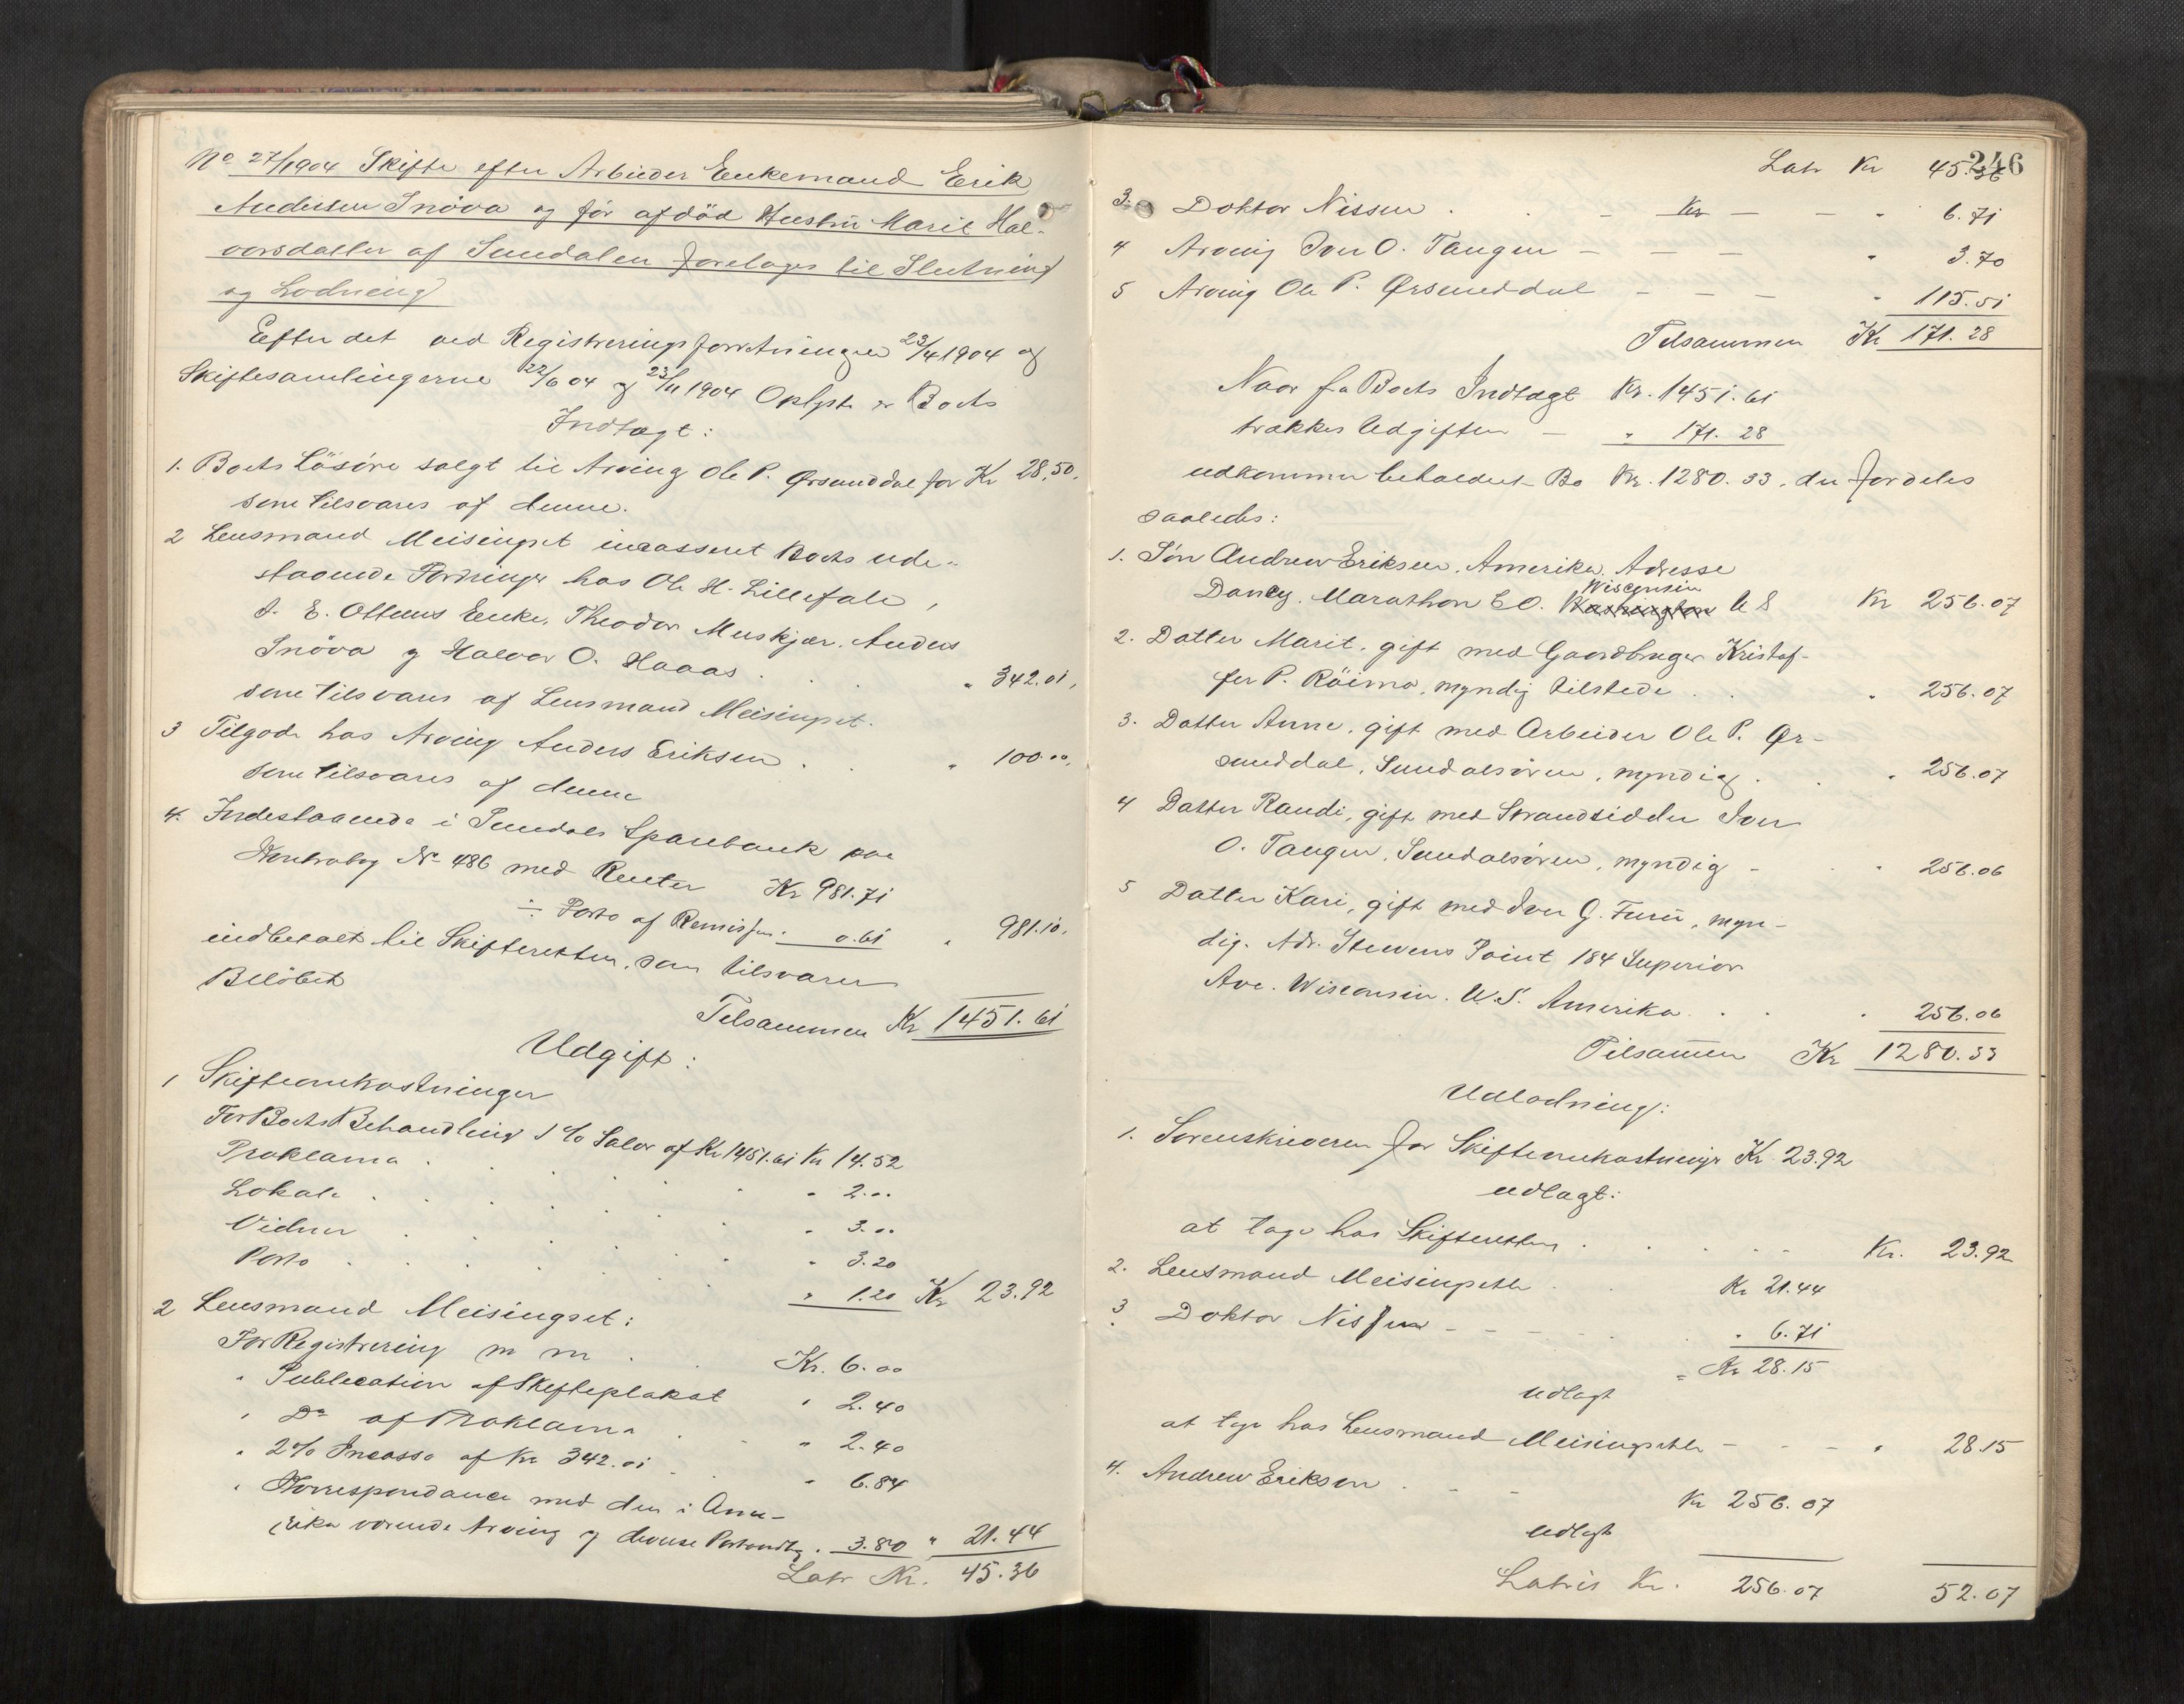 No 27/1904 Skifte efter Arbeider Enkemand Erik
Andersen Snöva og för afdöd Hustru Marit Hal-
vorsdatter af Sundalen foretages til Slutning
og Lodning
Efter det ved Registreringsforretningen 23/4 1904 og
Skiftesamlingerne 22/6 04 og 23/11 1904 Oplyste er Boets
Indtægt:
1. Boets Lösöre solgt til Arving Ole P. Ørsunddal for Kr 28.50.
som tilsvares af denne.
2 Lensmand Meisingset incasseret Boets ude-
staaende Fordringer hos Ole H. Lillefale,
J. E. Ottems Enke, Theodor Muskjær, Anders
Snöva og Halvor O. Haaas . . . " 342.01,
som tilsvares af Lensmand Meisingset.
3 Tilgode hos Arving Anders Eriksen . . " 100.00,
som tilsvares af denne
4. Indestaaende i Sundals Sparebank paa
Kontrabog No 486 med Renter Kr 981.71
÷ Porto af Remissen. 0.61 " 981.10,
indbetalt til Skifteretten, som tilsvarer
Belöbet
Tilsammen Kr 1451.61
Udgift:
1 Skifteomkostninger
For Boets Behandling 1 % Salær af Kr 1451.61 Kr 14.52
Proklama . . . . " 2.00
Lokale . . . . " 3.00
Vidner . . . . " 3.20
Porto . . . . " 1.20 Kr 23.92
2 Lensmand Meisingset:
For Registrering m m . . Kr. 6.00
" Publication af Skifteplakat " 2.40
" Do af Proklama . . " 2.40
" 2 % Incasso af Kr 342.01 . " 6.84
" Korrespondance med den i Ame-
rika værende Arving og dennes Portoudlæg . 3.80 " 21.44
Latr Kr. 45.36
246
Latr Kr 45.36
3. Doktor Nissen . . - Kr - - " 6.71
4 Arving Iver O. Tangen - - - " 3.70
5 Arving Ole P. Ørsunddal - - - " 115.51
Tilsammen Kr 171.28
Naar fra Boets Indtægt Kr. 1451.61
trækkes Udgiften - " 171.28
udkommer beholdent Bo Kr. 1280.33, der fordeles
saaledes:
1. Sön Andrew Eriksen, Amerika. Adresse
Wisconsin
Dancy. Marathon CO. Washington U S Kr 256.07
2. Datter Marit, gift med Gaardbruger Kristof-
fer P. Röimo, myndig tilstede . . " 256.07
3. Datter Anne, gift med Arbeider Ole P. Ør-
sunddal, Sundalsören, myndig . . " 256.07
4 Datter Randi, gift med Strandsidder Iver
O. Tangen, Sundalsören, myndig - " 256.06
5 Datter Kari, gift med Iver G. Furu, myn-
dig. Adr. Stevens Point 184 Superior
Ave. Wisconsin. U.S. Amerika . . " 256.06
Tilsammen Kr 1280.33
Udlodning:
1. Sorenskriveren for Skifteomkostninger Kr 23.92
udlagt:
at tage hos Skifteretten . . . . - Kr. 23.92
2. Lensmand Meisingseth . . Kr 21.44
3. Doktor Nissen - - - . . " 6.71
= Kr 28.15
udlagt
at tage hos Lensmand Meisingseth - - - " 28.15
4. Andrew Eriksen . - - Kr 256.07
udlagt
Latris Kr. 256.07 52.07